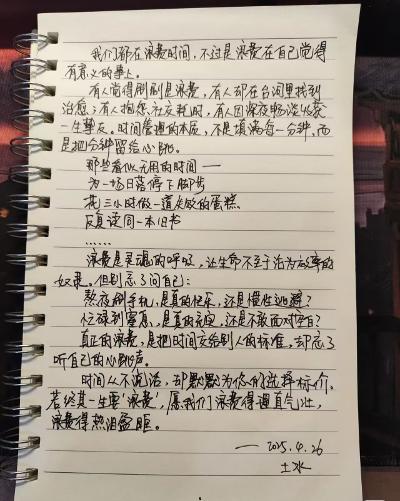 我们都在浪费时间，不过是浪费在自己觉得
有意义的事上。
有人觉得刷剧是浪费，有人却在台词里找到
治愈；有人抱怨社交耗时，有人因深夜畅谈收获
一生挚友。时间管理的本质，不是填满每一分钟，而
是把分钟留给心跳。
那些看似无用的时间——
为一场日落停下脚步
花三小时做一道失败的蛋糕
反复读同一本旧书
……
浪费是灵魂的呼吸，让生命不至于沦为效率的
奴隶。但别忘了问自己：
熬夜刷手机，是真的快乐，还是惯性逃避？
忙碌到窒息，是真的充实，还是不敢面对空白？
真正的浪费，是把时间交给别人的标准，却忘了
听自己的心跳声。
时间从不说话，却默默为你的选择标价。
若终其一生要“浪费”，愿我们浪费得理直气壮，
浪费得热泪盈眶。
——2025.4.26
土水